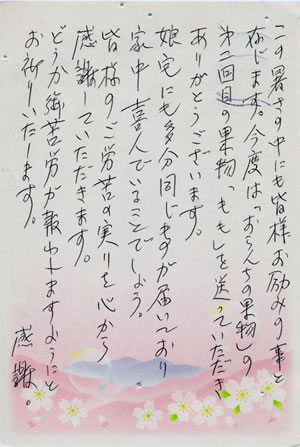 この暑さの中にも皆様お励みの事と
存じます。今度は「おらんちの果物」の
第二回目の果物「もも」を送っていただき
ありがとうございます。
娘宅にも多分同じものが届いており
家中喜んでいることでしょう。
皆様のご労苦の実りを心から
感謝していただきます。
どうか御苦労が報われますようにと
お祈りいたします。
感謝。